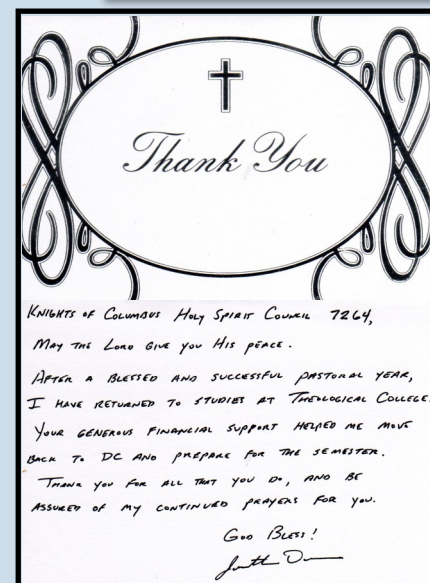 Thank You
KNIGHTS OF COLUMBUS HOLY SPIRIT COUNCIL 7264,
MAY THE LORD GIVE YOU HIS PEACE.
AFTER A BLESSED AND SUCCESSFUL PASTORAL YEAR,
I HAVE RETURNED TO STUDIES AT THEOLOGICAL COLLEGE.
YOUR GENEROUS FINANCIAL SUPPORT HELPED ME MOVE
BACK TO DC AND PREPARE FOR THE SEMESTER.
THANK YOU FOR ALL THAT YOU DO, AND BE
ASSURED OF MY CONTINUED PRAYERS FOR YOU.
GOD BLESS!